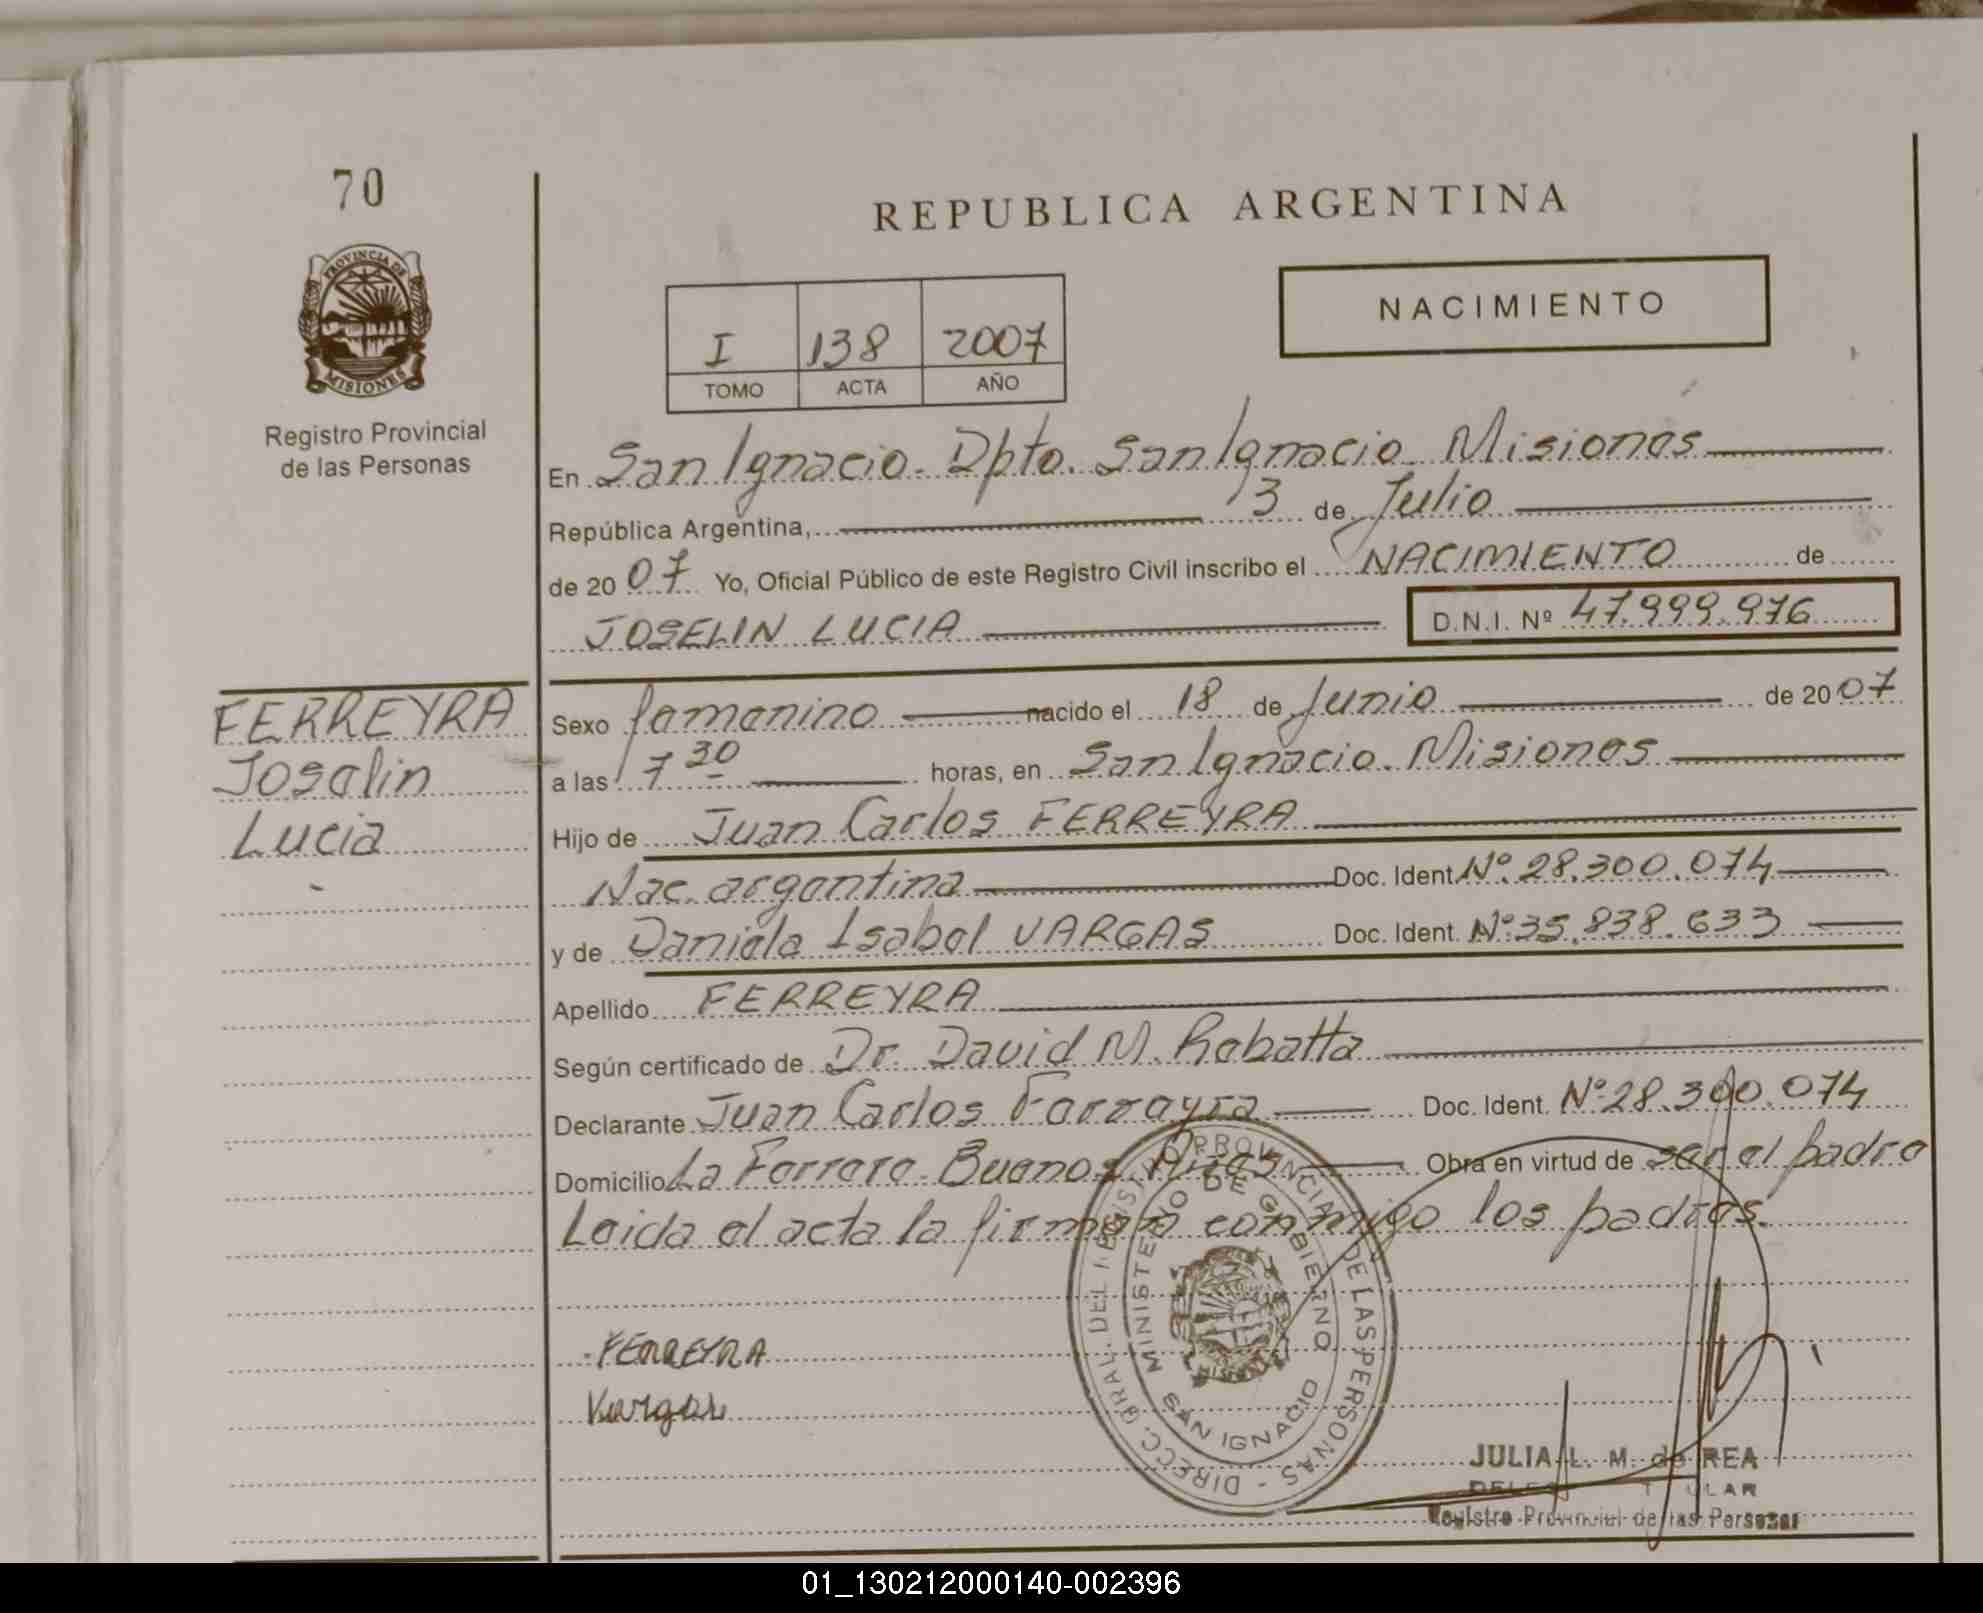 70
REPUBLICA ARGENTINA
PROVINCIA DE
MISIONES
NACIMIENTO
I 138 2007
TOMO ACTA AÑO
Registro Provincial
de las Personas
En San Ignacio. Dpto. San Ignacio. Misiones
República Argentina, 3 de Julio
de 20 07 Yo, Oficial Público de este Registro Civil inscribo el NACIMIENTO de
JOSELIN LUCIA D.N.I. Nº 47.999.976
FERREYRA
Joselin
Lucia
Sexo femenino nacido el 18 de Junio de 20 07
a las 7 30 horas, en San Ignacio. Misiones
Hijo de Juan Carlos FERREYRA
Nac. argentina Doc. Ident. Nº 28.300.074
y de Daniela Isabel VARGAS Doc. Ident. Nº 35.838.633
Apellido FERREYRA
Según certificado de Dr. David M. Rebatta
Declarante Juan Carlos Ferreyra Doc. Ident. Nº 28.300.074
Domicilio La Buenos Aires Obra en virtud de ser el padre
Leida el acta la firman conmigo los padres.
FERREYRA
Vargas
DIRECC. GRAL. DEL REGISTRO PROVINCIAL DE LAS PERSONAS -
MINISTERIO DE GOBIERNO
SAN IGNACIO
JULIA L. M. de REA
Registro Provincial de las Personas
01_130212000140-002396